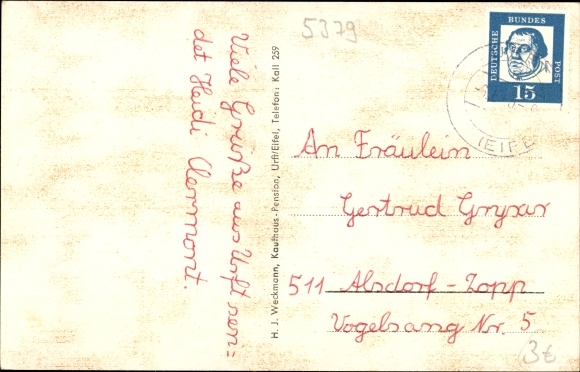 5379
Viele Grüße aus Urft sen=
det Heidi Clermont.
H. J. Weckmann, Kaufhaus-Pension, Urft/Eifel, Telefon: Kall 259
DEUTSCHE
BUNDES
POST
15
(EIFEL
An Fräulein
Gertrud
511 Alsdorf - Zopp
Vogelsang Nr. 5
3€